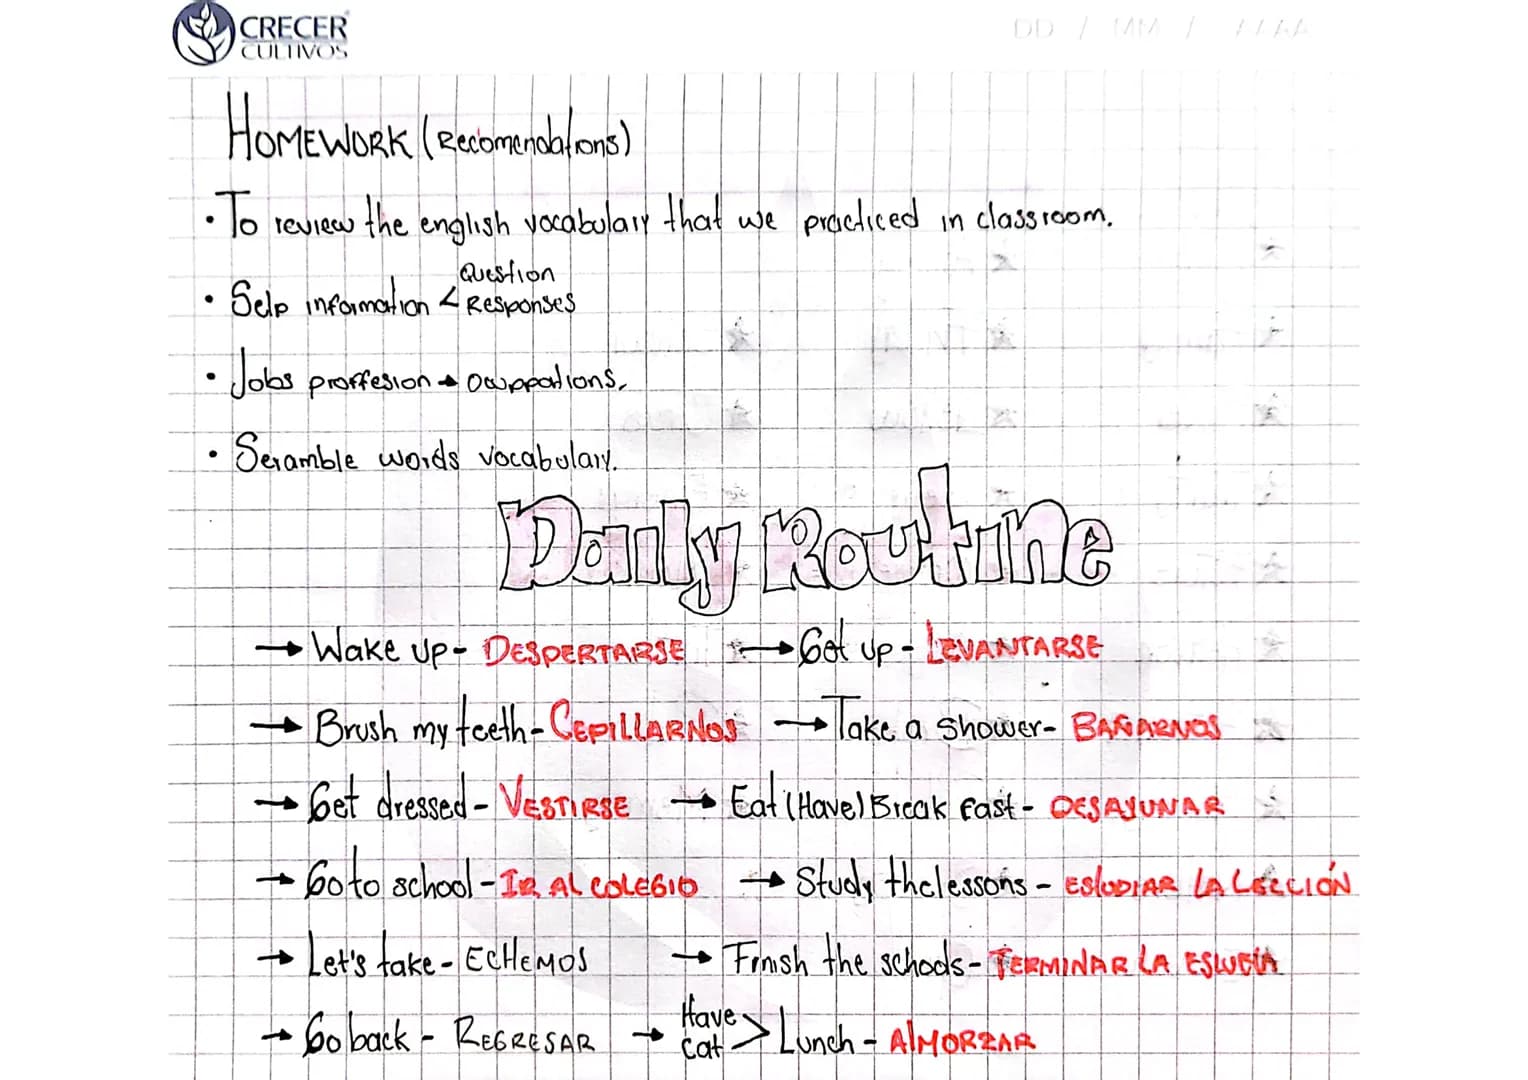 CRECER
CULTIVOS
DD / MM / AAAA
HOMEWORK (Recomendations)
• To review the english vocabulary that we practiced in classroom.
• Selp information < Question
Responses
• Jobs proffesion → Owppations.
• Seramble words vocabulary.
Daily Routine
→ Wake up - DESPERTARSE → Get up - LEVANTARSE
→ Brush my teeth - CEPILLARNOS → Take a shower - BAÑARNOS
→ Get dressed - VESTIRSE → Eat (Have) Break fast - DESAYUNAR
→ Go to school - IR AL COLEGIO → Study the lessons - ESTUDIAR LA LECCIÓN
→ Let's take - ECHEMOS → Finish the schools - TERMINAR LA
→ Go back - REGRESAR → Have
eat > Lunch - AlMORZAR